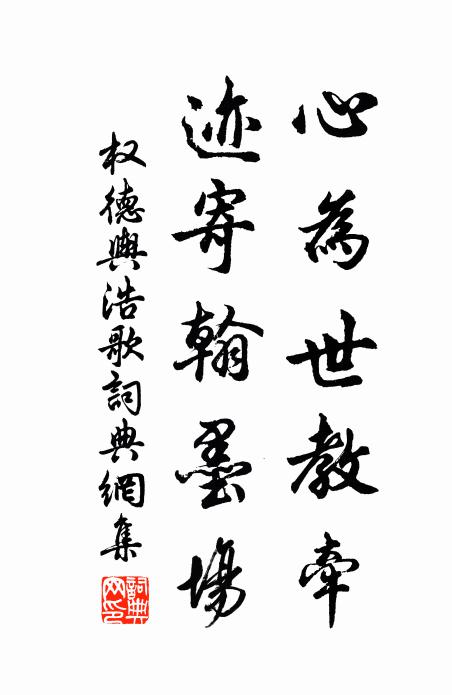 心為世教牽
迹寄翰墨場
权德輿浩歌詞典網集
詞典网印